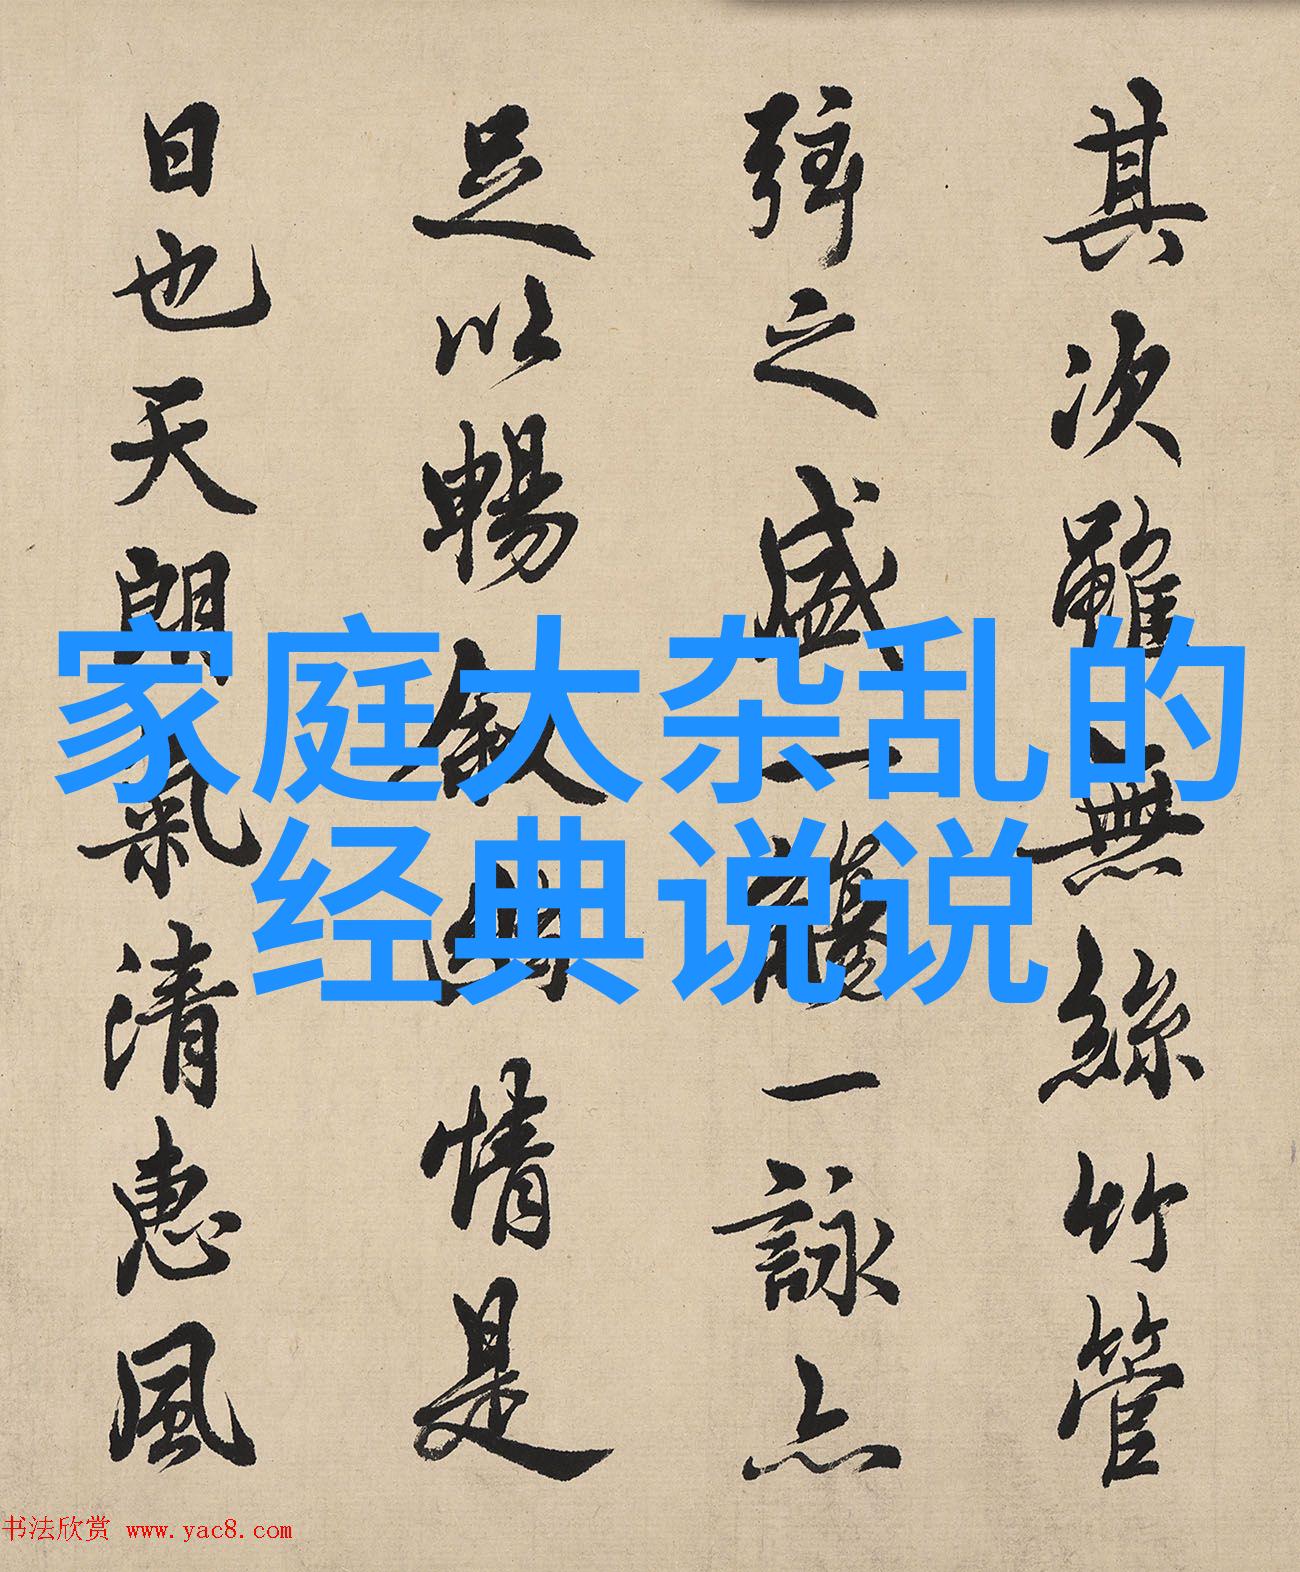 其次雖無絲竹管
弦之盛一觴一詠亦
足以暢叙幽情是
日也天朗氣清惠風
家庭大杂乱的
经典说说
书法欣赏 www.yac8.com